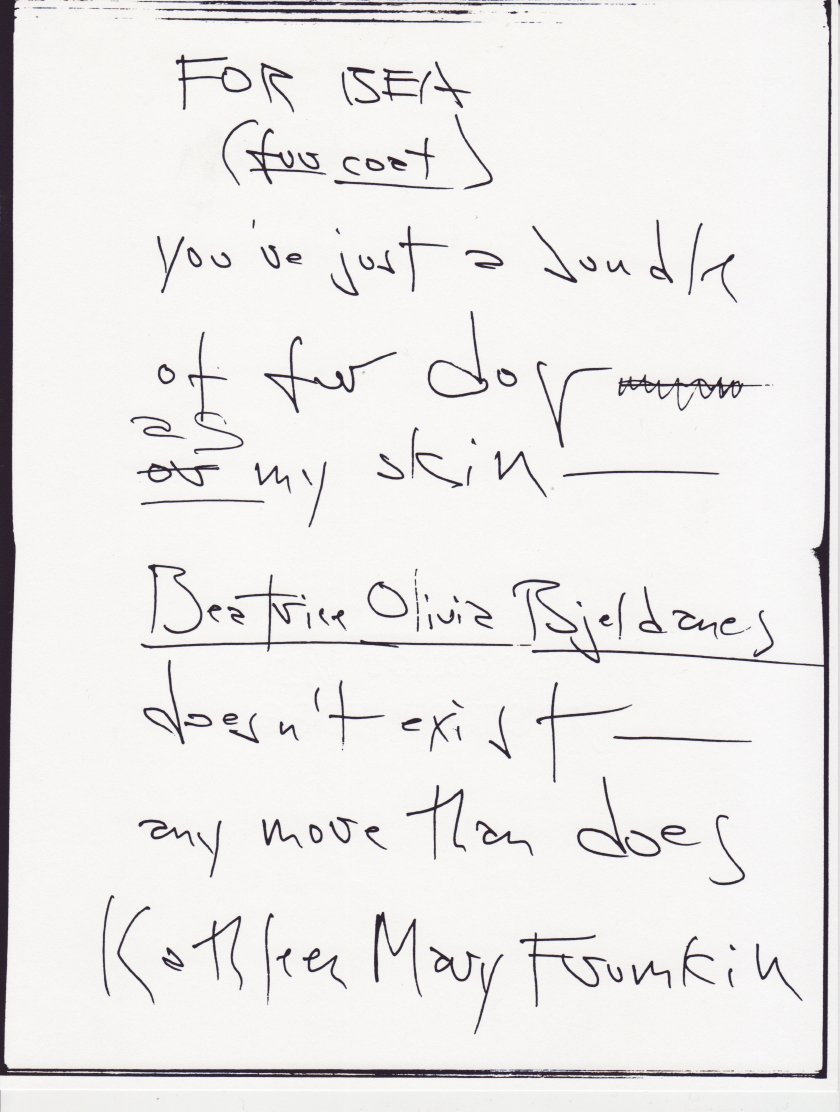 FOR BEA
(fur coat)
you've just a bundle
of fur dor
as
or my skin —
Beatrice Olivia Bjeldanes
doesn't exist —
any more than does
Kathleen Mary Frumkin